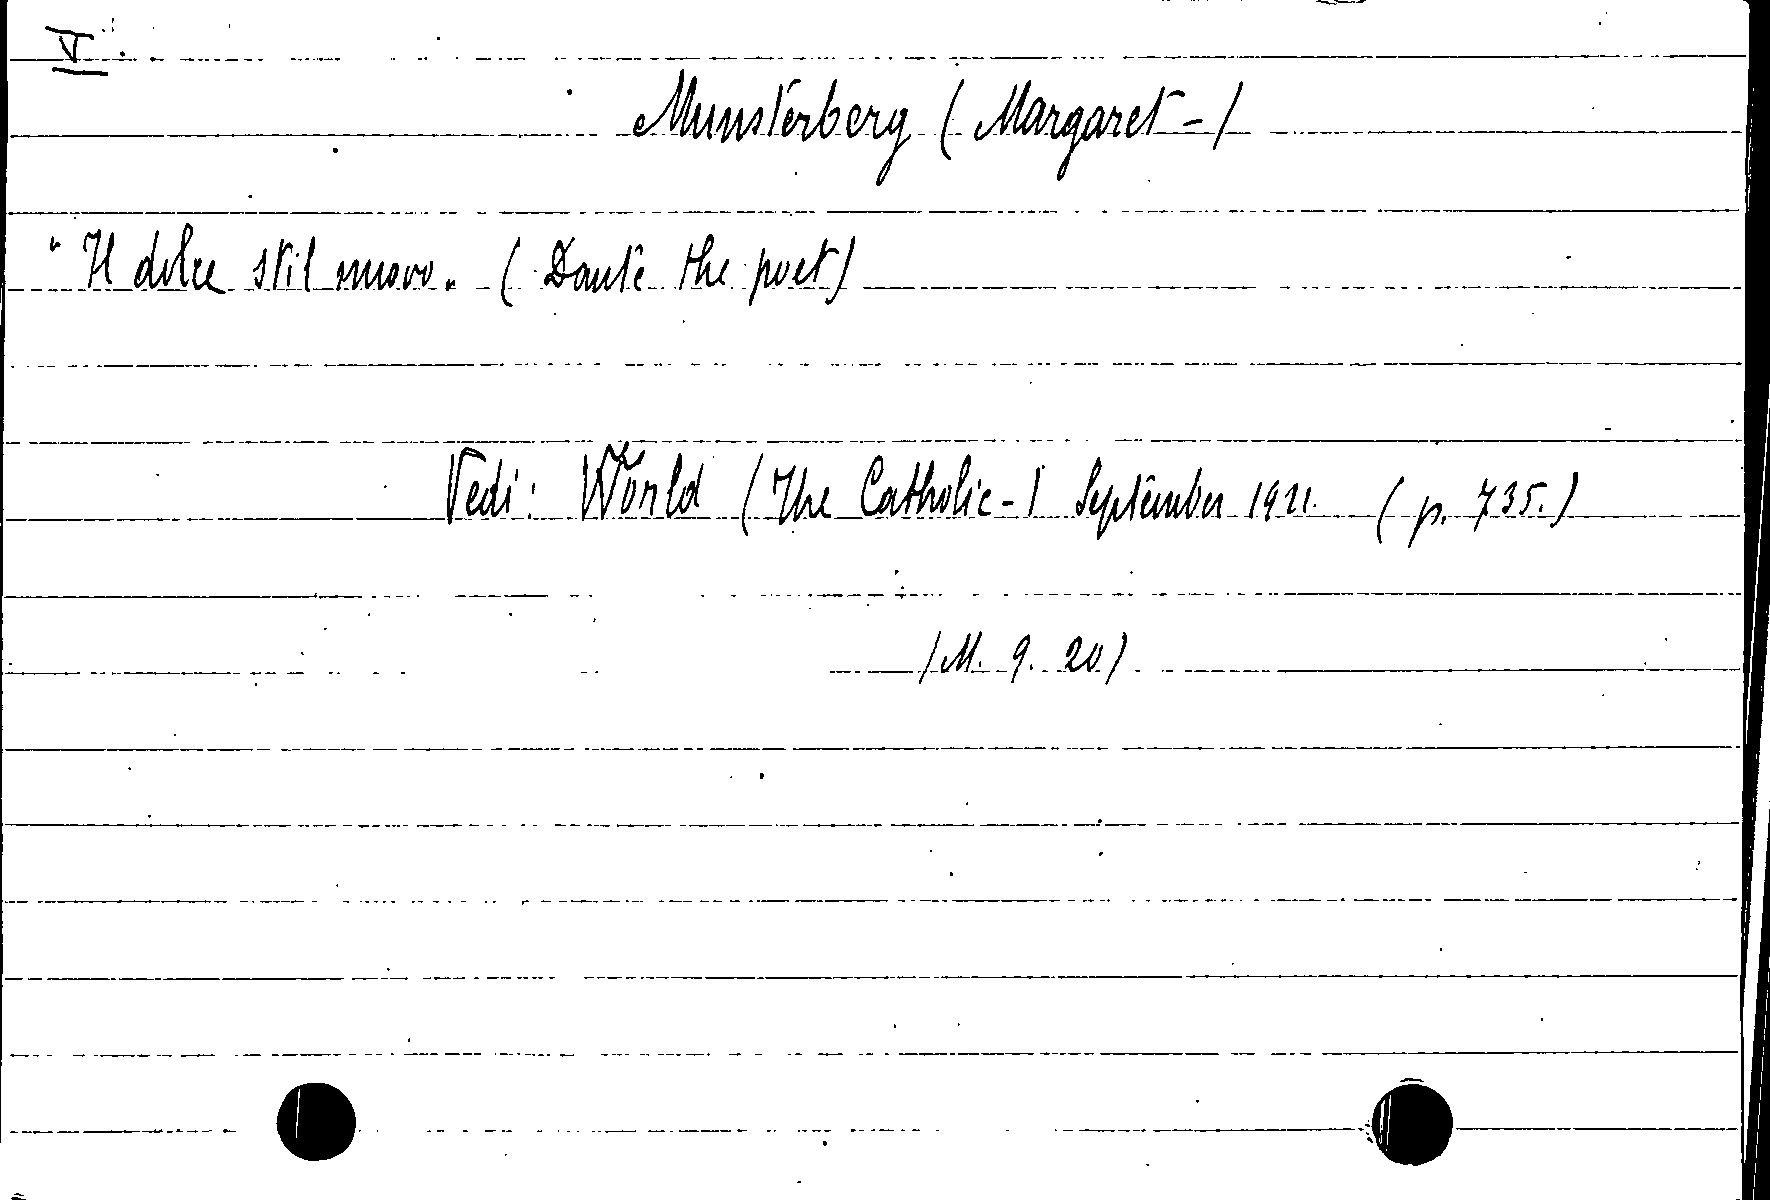 V.
Munsterberg (Margaret-)
"Il dolce stil nuovo" (Dante the poet)
Vedi: World (The Catholic-) September 1921. (p. 735.)
(M. 9. 20)